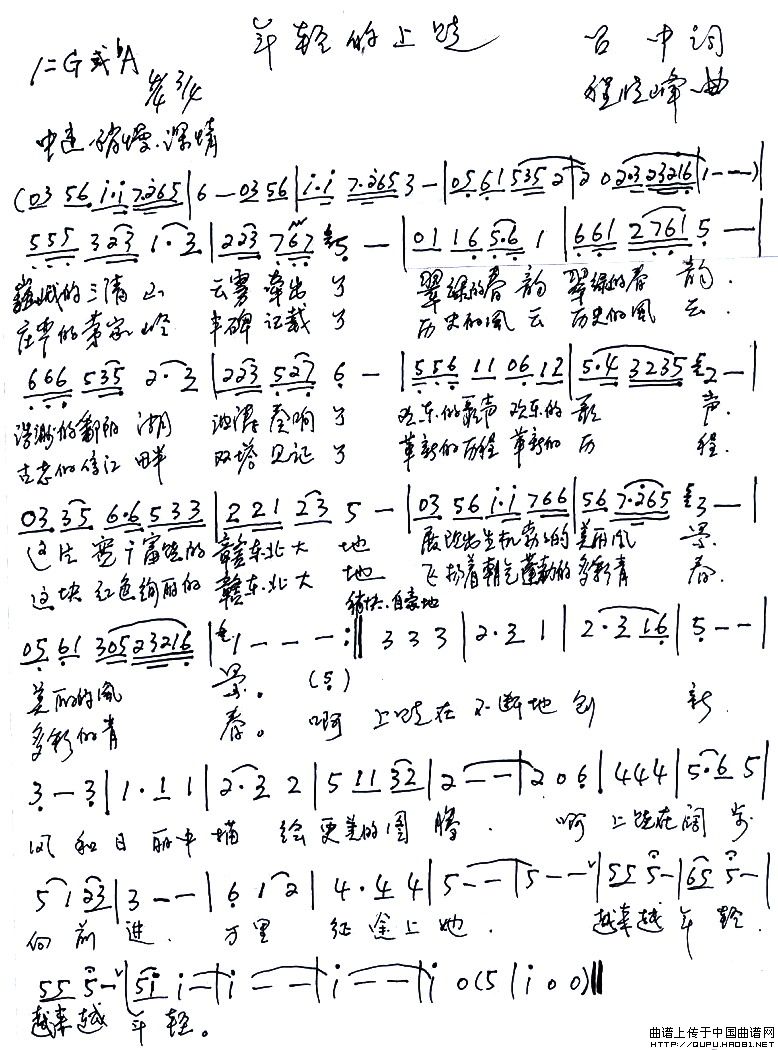 年轻的上饶
吕中词
1=G或♭A 4/4 3/4
程恺峰曲
中速 稍慢.深情
(03 56 i·i 7265|6 — 03 56|i·i 7265 3 —|05 61 535 2|2 0 23 23216|1 — —)|
555 323 1·3|223 767 5 —|01 16 5·6 1|661 2761 5 —|
巍峨的三清山 云雾牵出了 翠绿的春韵 翠绿的春韵.
庄严的葛家岭 丰碑记载了 历史的风云 历史的风云.
666 535 2·3|223 527 6 —|556 11 06 12|5·4 3235 2 —|
浩渺的鄱阳湖 波涛奏响了 欢乐的歌声 欢乐的歌声.
古老的信江畔 双塔见证了 革新的历程 革新的历程.
03 35 6·6 533|221 23 5 —|03 56 i·i 766|56 7·265 3 —|
这片 富饶的赣东北大地 展现出生机 的美丽风景.
这块红色绚丽的赣东北大地 飞扬着朝气蓬勃的多彩青春.
稍快.自豪地
05 61 305 23216|1 — — — :‖ 3 3 3|2·3 1|2·3 16|5 — —|
美丽的风景。 (5)
多彩的青春。 啊 上饶在不断地创新.
3 — 3|1·1 1|2·3 2|5 11 32|2 — —|2 0 6|4 4 4|5·6 5|
风和日丽中描绘更美的图腾. 啊 上饶在阔步
5 1 23|3 — —|6 1 2|4·4 4|5 — —|5 — —|55 5 —|65 5 —|
向前进. 万里征途上她. 越来越年轻.
55 5 —|5i i —|i — —|i — —|i 0 (5|i 0 0)‖
越来越年轻。
曲谱上传于中国曲谱网
HTTP://QUPU.HAO81.NET